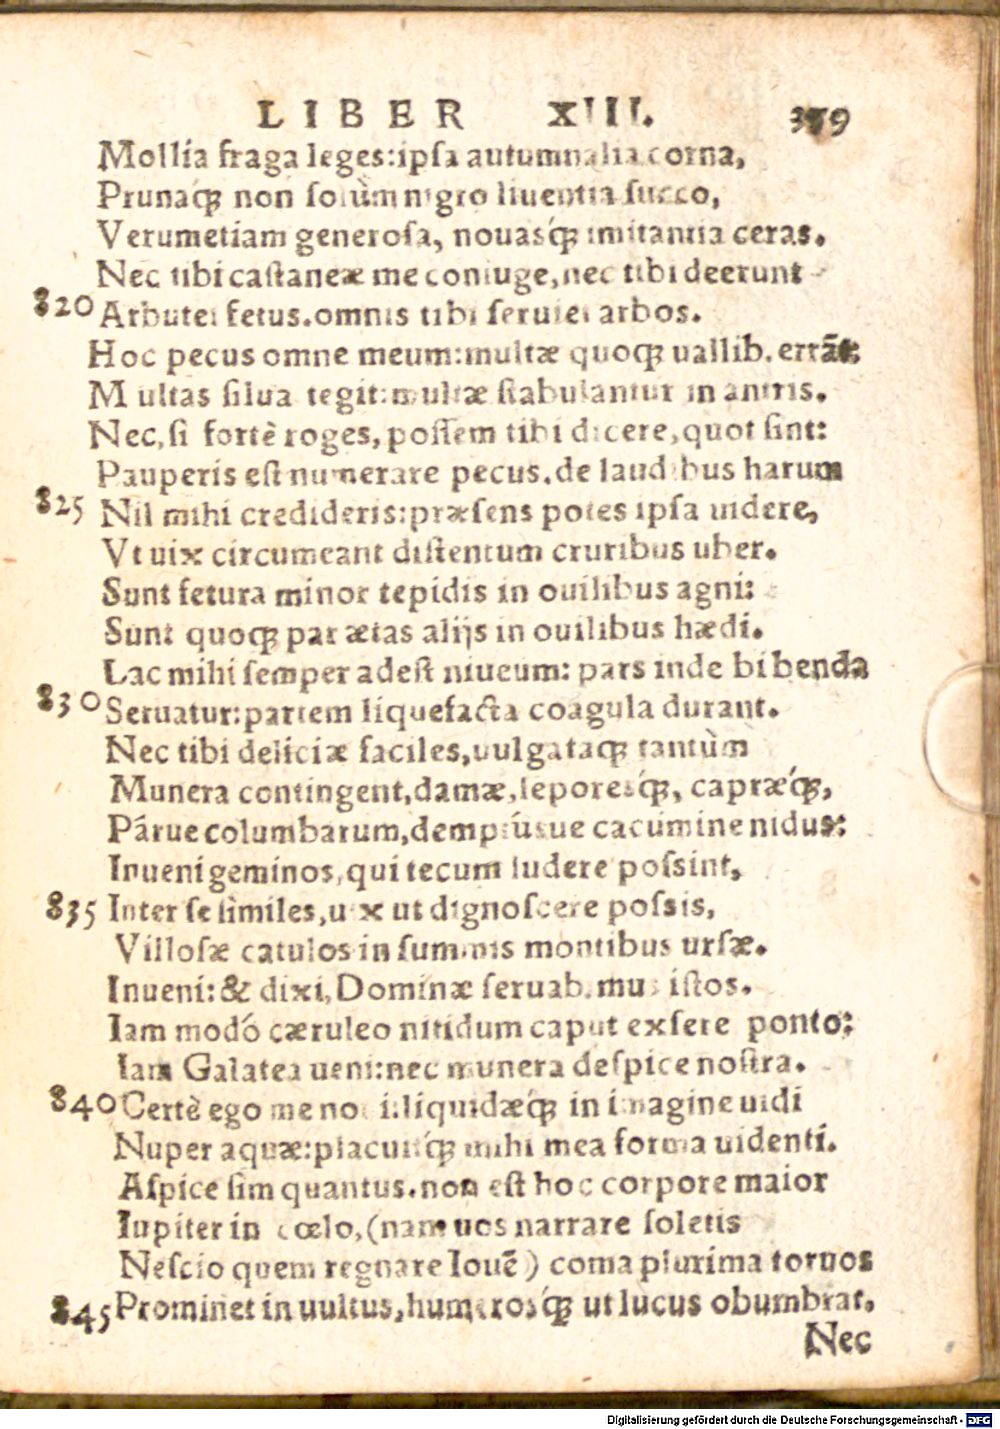 LIBER XIII. 379
Mollia fraga leges:ipſa autumnalia corna,
Prunaq́; non ſolùm nigro liuentia ſucco,
Verumetiam generoſa, nouasq́; imitantia ceras.
Nec tibi caſtaneæ me coniuge,nec tibi deerunt
820 Arbutei fetus.omnis tibi ſeruiet arbos.
Hoc pecus omne meum:multæ quoq; uallib. errāt:
Multas ſilua tegit:multæ ſtabulantur in antris.
Nec,ſi fortè roges, poſſem tibi dicere,quot ſint:
Pauperis eſt numerare pecus.de laudibus harum
825 Nil mihi credideris:præſens potes ipſa uidere,
Vt uix circumeant diſtentum cruribus uber.
Sunt fetura minor tepidis in ouilibus agni:
Sunt quoq; par ætas alijs in ouilibus hædi.
Lac mihi ſemper adeſt niueum: pars inde bibenda
830 Seruatur:partem liquefacta coagula durant.
Nec tibi deliciæ faciles,uulgataq; tantùm
Munera contingent,damæ,leporesq́;, capræq́;,
Párue columbarum,demptúsue cacumine nidus:
Inueni geminos,qui tecum ludere poſsint,
835 Inter ſe ſimiles,uix ut dignoſcere poſsis,
Villoſæ catulos in ſummis montibus urſæ.
Inueni:& dixi,Dominæ ſeruabimus iſtos.
Iam modó cæruleo nitidum caput exſere ponto:
Iam Galatea ueni:nec munera deſpice noſtra.
840 Certè ego me noui:liquidæq́; in imagine uidi
Nuper aquæ:placuitq́; mihi mea forma uidenti.
Aſpice ſim quantus.non eſt hoc corpore maior
Iupiter in cœlo,(nam uos narrare ſoletis
Neſcio quem regnare Iouē) coma plurima toruos
845 Prominet in uultus,humerosq́; ut lucus obumbrat.
Nec
Digitalisierung gefördert durch die Deutsche Forschungsgemeinschaft - DFG